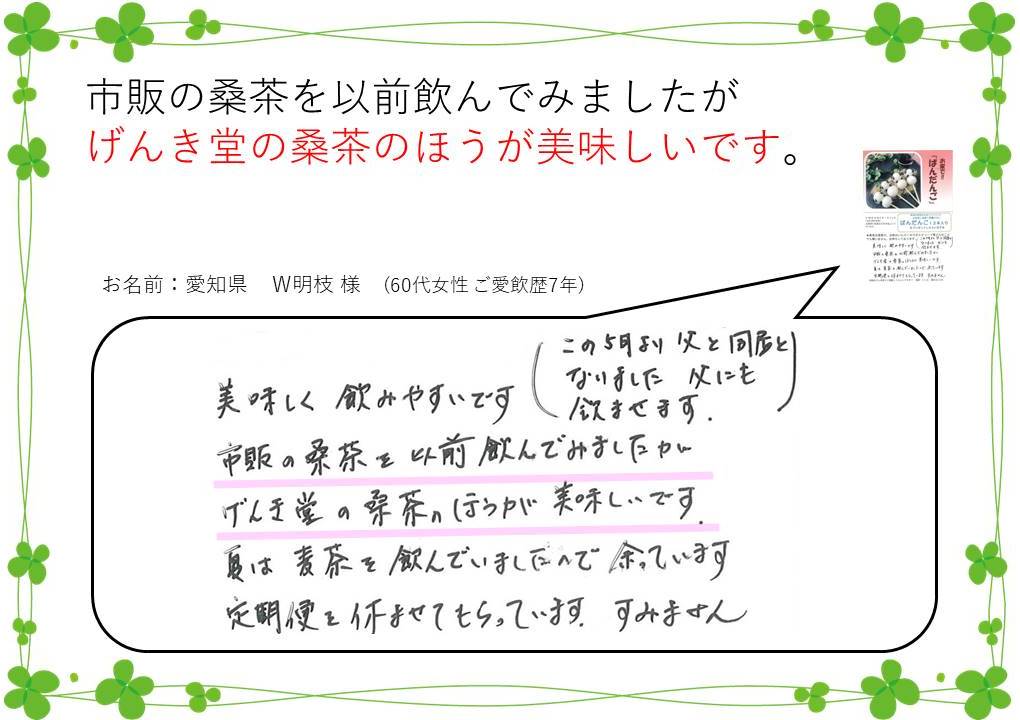 市販の桑茶を以前飲んでみましたが
げんき堂の桑茶のほうが美味しいです。
お客さまの
「ぱんだんご」
お名前：愛知県　W明枝 様　（60代女性 ご愛飲歴7年）
この5月より 父と同居と
なりました 父にも
飲ませます.
美味しく 飲みやすいです
市販の桑茶を以前飲んでみましたが
げんき堂の桑茶のほうが 美味しいです.
夏は 麦茶を飲んでいましたので 余っています
定期便を休ませてもらっています. すみません